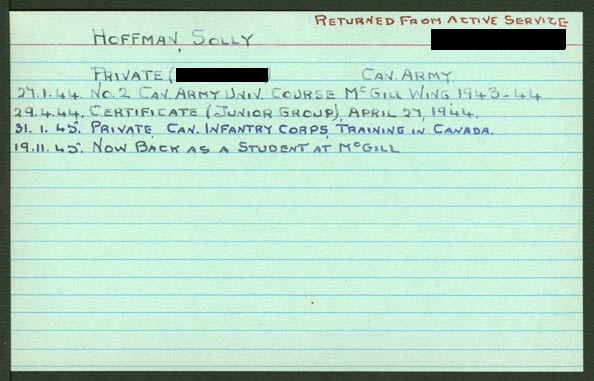 RETURNED FROM ACTIVE SERVICE
HOFFMAN, SOLLY
PRIVATE ( ) CAN. ARMY
27.1.44. NO. 2 CAN. ARMY UNIV. COURSE MCGILL WING 1943-44
29.4.44. CERTIFICATE (JUNIOR GROUP), APRIL 27, 1944.
31.1.45. PRIVATE, CAN. INFANTRY CORPS, TRAINING IN CANADA.
19.11.45. NOW BACK AS A STUDENT AT MCGILL